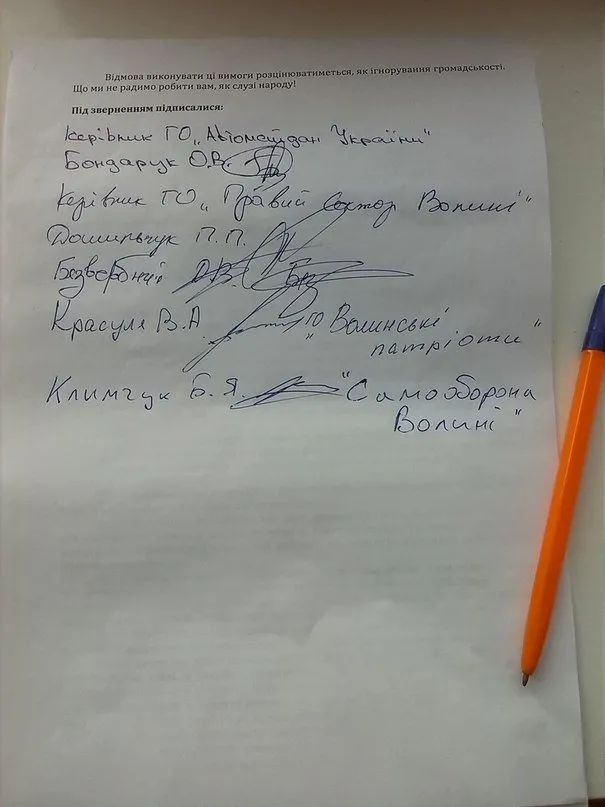 Відмова виконувати ці вимоги розцінюватиметься, як ігнорування громадськості.
Що ми не радимо робити вам, як слузі народу!
Під зверненням підписалися:
Керівник ГО „Автомайдан України"
Бондарук О.В.
Керівник ГО „Правий Сектор Волині"
П. П.
О.В.
Красуля В.А ГО „Волинські
патріоти"
Климчук Б. Я. "Самооборона
Волині"